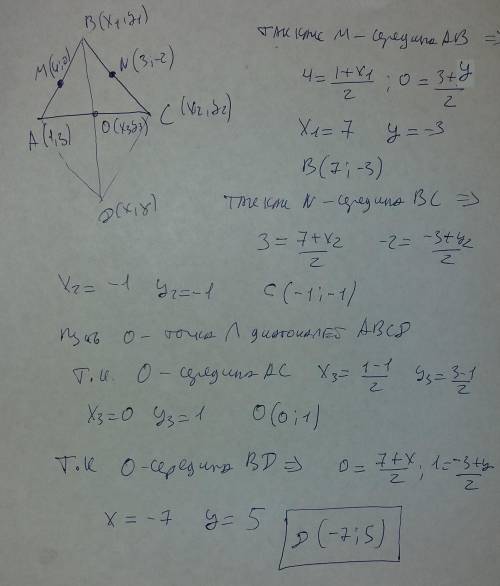 B(x₁,y₁)
M(4;0)
N(3;-2)
A(1,3)
O(x₃y₃)
C (x₂,y₂)
D(x,y)
Так как M - середина AB =>
4 = (1+x₁)/2 ; 0 = (3+y)/2
x₁ = 7 y = -3
B(7;-3)
Так как N - середина BC =>
3 = (7+x₂)/2 -2 = (-3+y₂)/2
x₂ = -1 y₂ = -1 C(-1;-1)
Пусть O - точка ∩ диагоналей ABCD
Т.к. O - середина AC x₃ = (1-1)/2 y₃ = (3-1)/2
x₃ = 0 y₃ = 1 O(0;1)
Т.к O - середина BD => 0 = (7+x)/2 ; 1 = (-3+y)/2
x = -7 y = 5 D(-7;5)